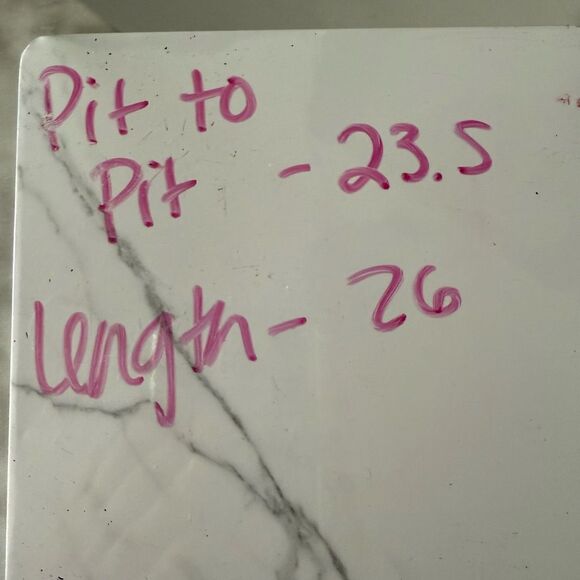 Pit to
Pit - 23.5
Length - 26